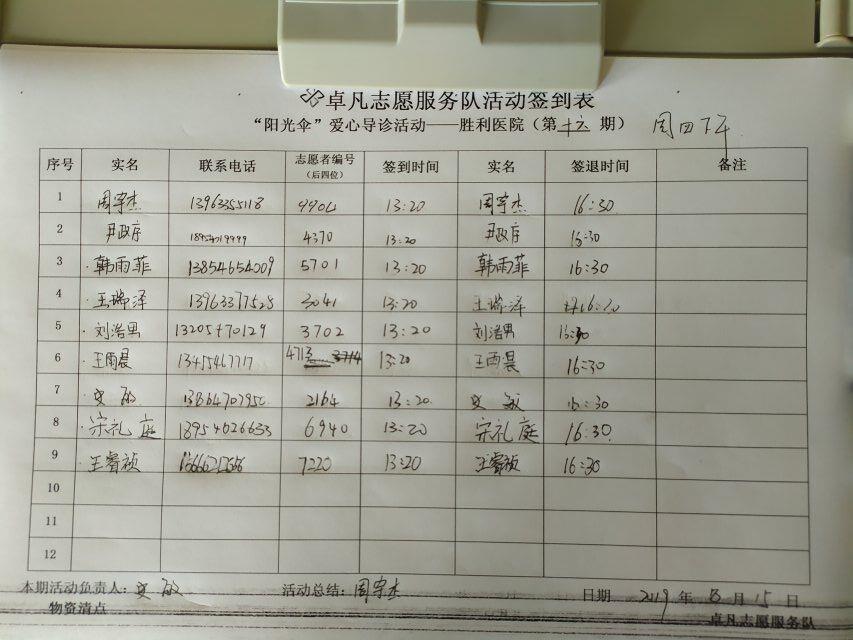 卓凡志愿服务队活动签到表
“阳光伞”爱心导诊活动——胜利医院（第十六期） 周四下午
序号 实名 联系电话 志愿者编号（后四位） 签到时间 实名 签退时间 备注
1 周宇杰 13963355118 13:20 周宇杰 16:30
2 尹政存 18954019999 4370 13:20 尹政存
3 韩雨菲 13854654009 5701 13:20 韩雨菲 16:30
4 王瑞泽 13963377528 3041 13:20 王瑞泽
5 刘浩男 13205470129 3702 13:20 刘浩男 16:30
6 王雨晨 13455467717 4713 13:20 王雨晨 16:30
7 2164 13:20 16:30
8 宋礼庭 18954626633 6940 13:20 宋礼庭 16:30
9 王睿祯 7220 13:20 王睿祯 16:30
10
11
12
本期活动负责人： 活动总结：周宇杰 日期 2019年8月15日
物资清点 卓凡志愿服务队